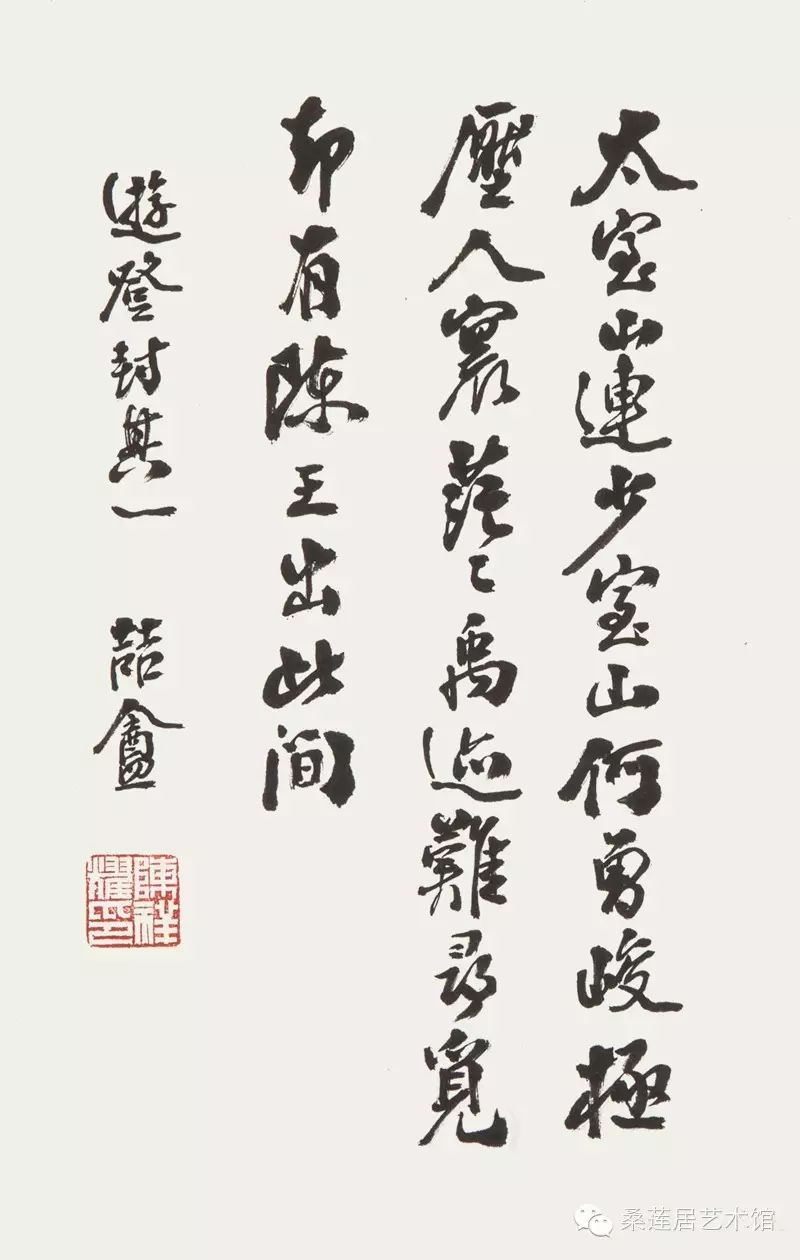 太室山連少室山何曾峻極
壓人寰茫〻禹迹難尋覓
却有陳王出此間
遊登封其一 喆盦
陳祥耀印
桑莲居艺术馆